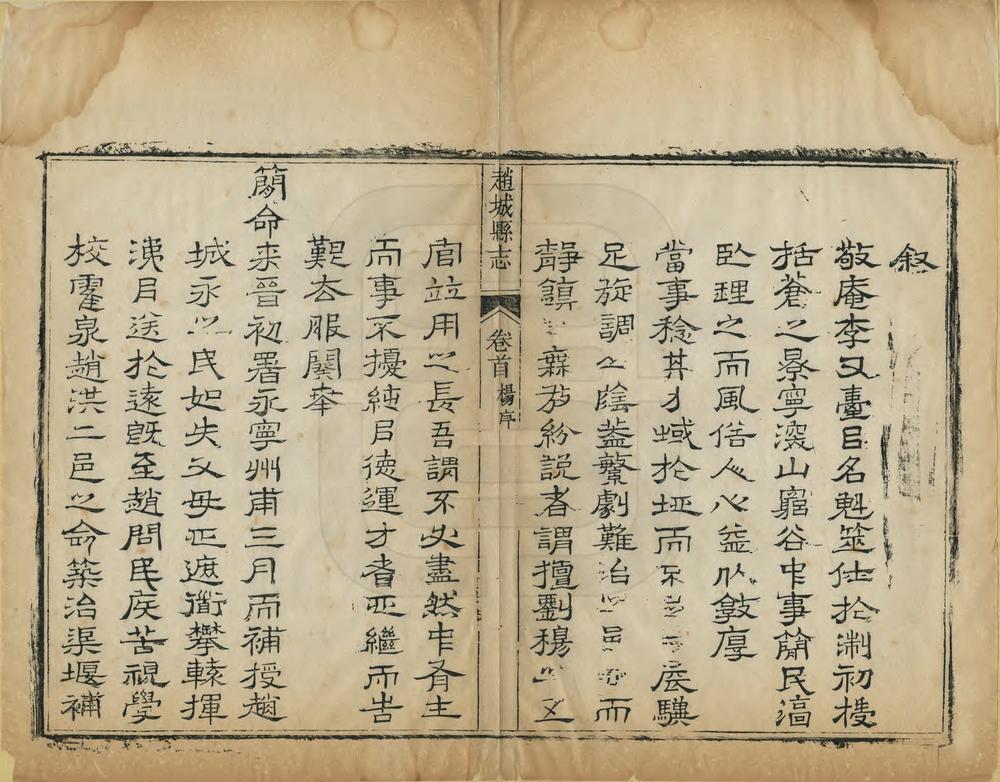 叙
敬庵李又臺㠯名魁筮仕於淛初授
括蒼之景寧深山窮谷中事簡民淳
臥理之而風俗人心益以敦厚
當事稔其才域於埡而不 展驥
足旋調 之陰葢繁劇難治 㠯 而
靜鎮 麻於紛説者謂擅劉穆 之五
官竝用之長吾謂不必盡然中有主
而事不擾純㠯德運才者亚繼而告
艱去服闋奉
簡命来晉初署永寧州甫三月而補授趙
城永之民如失父母亚遮衜攀轅揮
洟㠯送於遠既至趙問民疾苦視學
校霍泉趙洪二邑之命築治渠堰補
趙城縣志
卷首
楊序